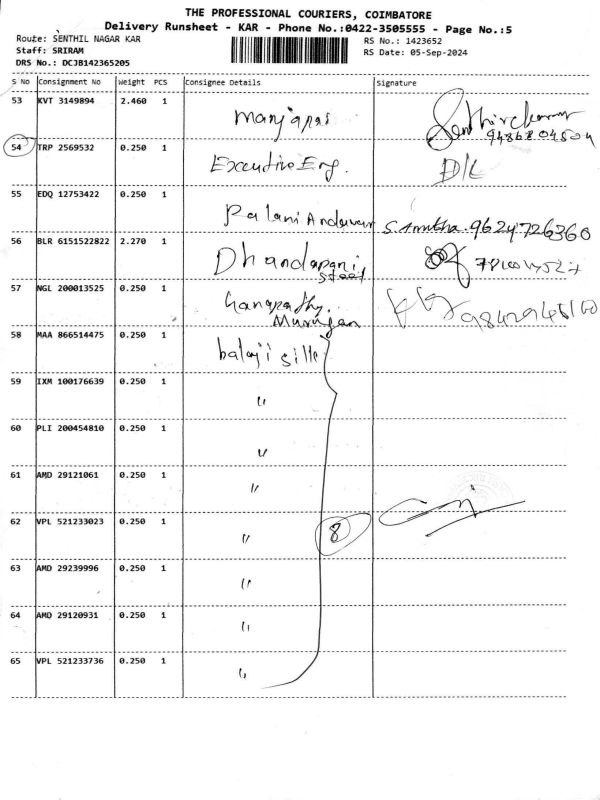 THE PROFESSIONAL COURIERS, COIMBATORE
Delivery Runsheet - KAR - Phone No.:0422-3505555 - Page No.:5
Route: SENTHIL NAGAR KAR RS No.: 1423652
Staff: SRIRAM RS Date: 05-Sep-2024
DRS No.: DCJB142365205
S No Consignment No Weight PCS Consignee Details Signature
53 KVT 3149894 2.460 1 Manjapai
54 TRP 2569532 0.250 1 Executive Eng. D/C
55 EDQ 12753422 0.250 1 Palani Andavar S. Amutha. 9624726360
56 BLR 6151522822 2.270 1 Dhandapani
Steel
57 NGL 200013525 0.250 1 Ganapathy
Murugan
58 MAA 866514475 0.250 1 balaji sille
59 IXM 100176639 0.250 1 "
60 PLI 200454810 0.250 1 "
61 AMD 29121061 0.250 1 "
62 VPL 521233023 0.250 1 " 8
63 AMD 29239996 0.250 1 "
64 AMD 29120931 0.250 1 "
65 VPL 521233736 0.250 1 "